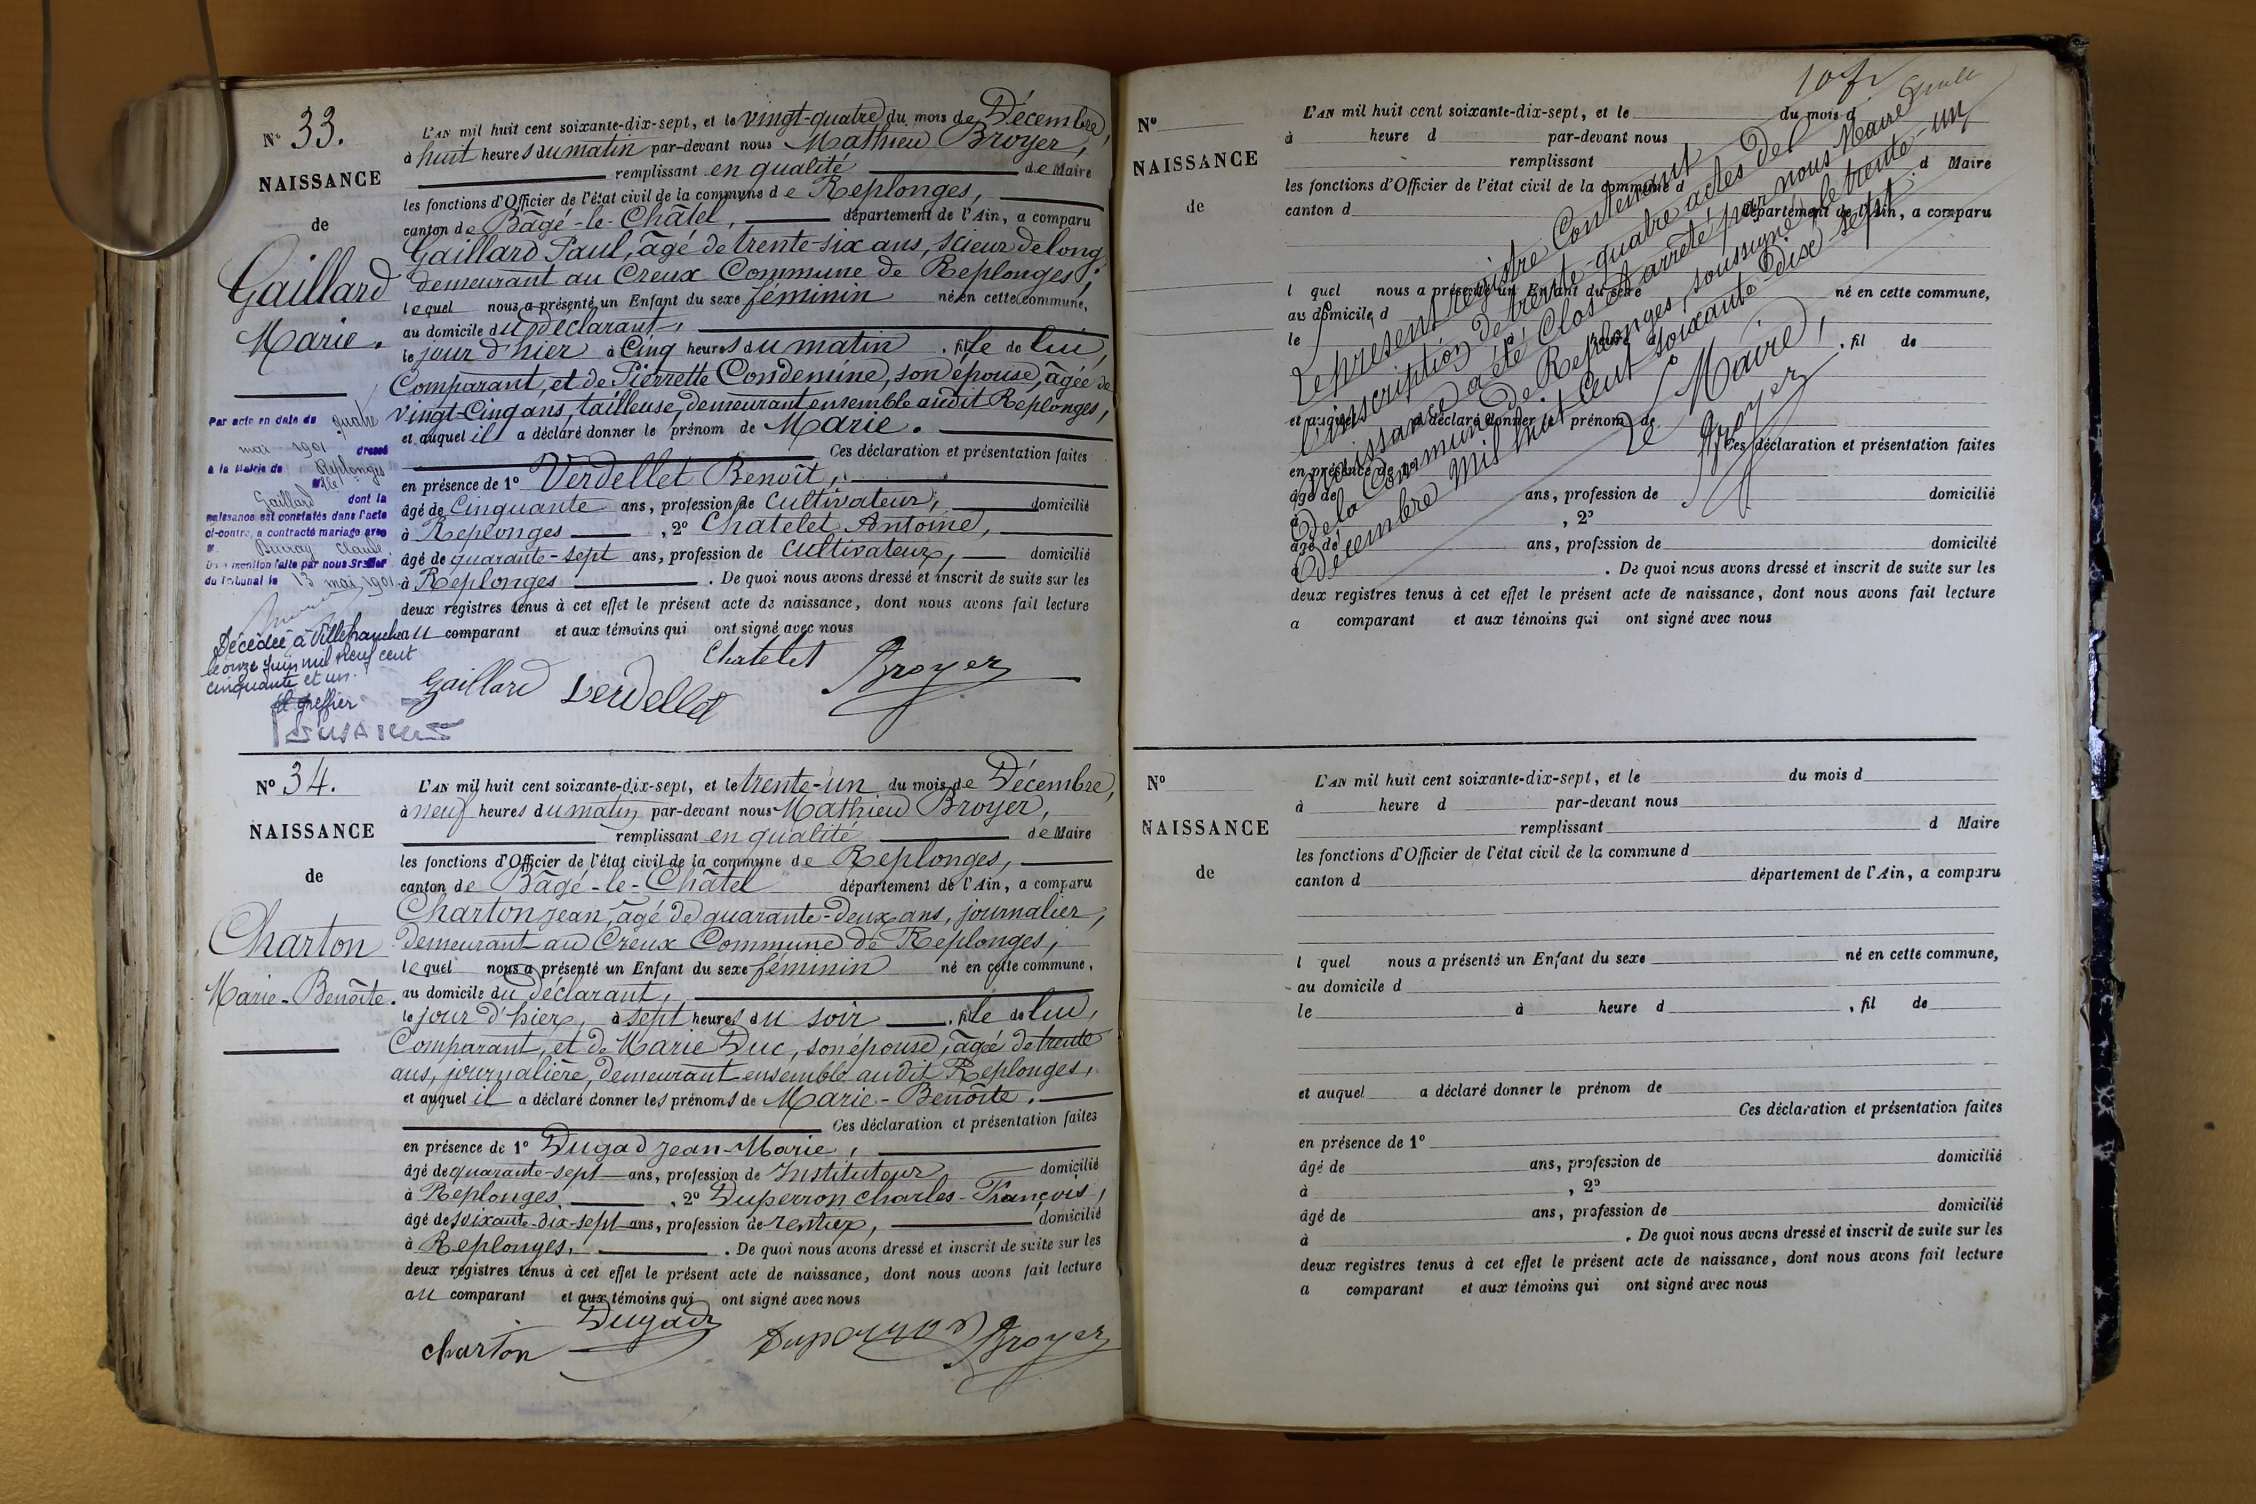 N° 33.
NAISSANCE
de
Gaillard
Marie.
Par acte en date du quatre
mai 1901 dressé
à la Mairie de Replonges
Mlle
Gaillard dont la
naissance est constatée dans l'acte
ci-contre, a contracté mariage avec
M. Burray Claude.
mention faite par nous Greffier
du Tribunal le 13 mai 1901
Décédée à Villefranche
le onze juin mil neuf cent
cinquante et un.
Le greffier
L'AN mil huit cent soixante-dix-sept, et le vingt-quatre du mois de Décembre,
à huit heures du matin par-devant nous Mathieu Broyer,
remplissant en qualité de Maire
les fonctions d'Officier de l'état civil de la commune de Replonges,
canton de Bâgé-le-Châtel, département de l'Ain, a comparu
Gaillard Paul, âgé de trente-six ans, scieur de long,
demeurant au Creux Commune de Replonges,
lequel nous a présenté un Enfant du sexe féminin né en cette commune,
au domicile du déclarant,
le jour d'hier à Cinq heures du matin, fille de lui,
Comparant, et de Pierrette Condemine, son épouse, âgée de
vingt-Cinq ans, tailleuse, demeurant ensemble audit Replonges,
et auquel il a déclaré donner le prénom de Marie.
Ces déclaration et présentation faites
en présence de 1° Verdellet Benoît,
âgé de Cinquante ans, profession de Cultivateur, domicilié
à Replonges, 2° Chatelet Antoine,
âgé de quarante-sept ans, profession de Cultivateur, domicilié
à Replonges. De quoi nous avons dressé et inscrit de suite sur les
deux registres tenus à cet effet le présent acte de naissance, dont nous avons fait lecture
au comparant et aux témoins qui ont signé avec nous
Chatelet
Gaillard Verdellet Broyer
N° 34.
NAISSANCE
de
Charton
Marie-Benoîte.
L'AN mil huit cent soixante-dix-sept, et le trente-un du mois de Décembre,
à neuf heures du matin par-devant nous Mathieu Broyer,
remplissant en qualité de Maire
les fonctions d'Officier de l'état civil de la commune de Replonges,
canton de Bâgé-le-Châtel département de l'Ain, a comparu
Charton Jean, âgé de quarante-deux ans, journalier,
demeurant au Creux Commune de Replonges,
lequel nous a présenté un Enfant du sexe féminin né en cette commune,
au domicile du déclarant,
le jour d'hier, à sept heures du soir, fille de lui,
Comparant, et de Marie Duc, son épouse, âgée de trente
ans, journalière, demeurant ensemble audit Replonges,
et auquel il a déclaré donner les prénoms de Marie-Benoîte.
Ces déclaration et présentation faites
en présence de 1° Dugad Jean-Marie,
âgé de quarante-sept ans, profession de Instituteur domicilié
à Replonges, 2° Duperron Charles-François,
âgé de soixante-dix-sept ans, profession de rentier, domicilié
à Replonges. De quoi nous avons dressé et inscrit de suite sur les
deux registres tenus à cet effet le présent acte de naissance, dont nous avons fait lecture
au comparant et aux témoins qui ont signé avec nous
Dugad
charton Duperron Broyer
N°
NAISSANCE
de
L'AN mil huit cent soixante-dix-sept, et le du mois d
à heure d par-devant nous
remplissant d Maire
les fonctions d'Officier de l'état civil de la commune d
canton d département de l'Ain, a comparu
l quel nous a présenté un Enfant du sexe né en cette commune,
au domicile d
le à heure d , fil de
et auquel a déclaré donner le prénom de
Ces déclaration et présentation faites
en présence de 1°
âgé de ans, profession de domicilié
à , 2°
âgé de ans, profession de domicilié
à . De quoi nous avons dressé et inscrit de suite sur les
deux registres tenus à cet effet le présent acte de naissance, dont nous avons fait lecture
a comparant et aux témoins qui ont signé avec nous
Le présent registre Contenant
l'inscription de trente-quatre actes de
naissance a été Clos et arrêté par nous Maire
de la Commune de Replonges, soussigné, le trente-un
Décembre mil huit Cent soixante-dix-sept.
Le Maire,
Broyer
N°
NAISSANCE
de
L'AN mil huit cent soixante-dix-sept, et le du mois d
à heure d par-devant nous
remplissant d Maire
les fonctions d'Officier de l'état civil de la commune d
canton d département de l'Ain, a comparu
l quel nous a présenté un Enfant du sexe né en cette commune,
au domicile d
le à heure d , fil de
et auquel a déclaré donner le prénom de
Ces déclaration et présentation faites
en présence de 1°
âgé de ans, profession de domicilié
à , 2°
âgé de ans, profession de domicilié
à . De quoi nous avons dressé et inscrit de suite sur les
deux registres tenus à cet effet le présent acte de naissance, dont nous avons fait lecture
a comparant et aux témoins qui ont signé avec nous